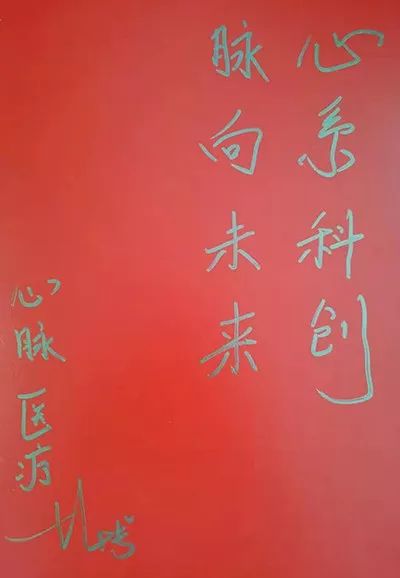 心系科创
脉向未来
心脉医疗